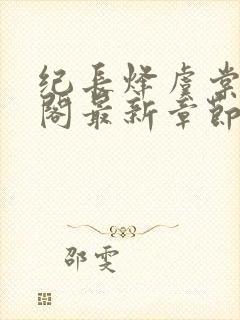 纪长烽虞棠
阁最新章节
邵雯